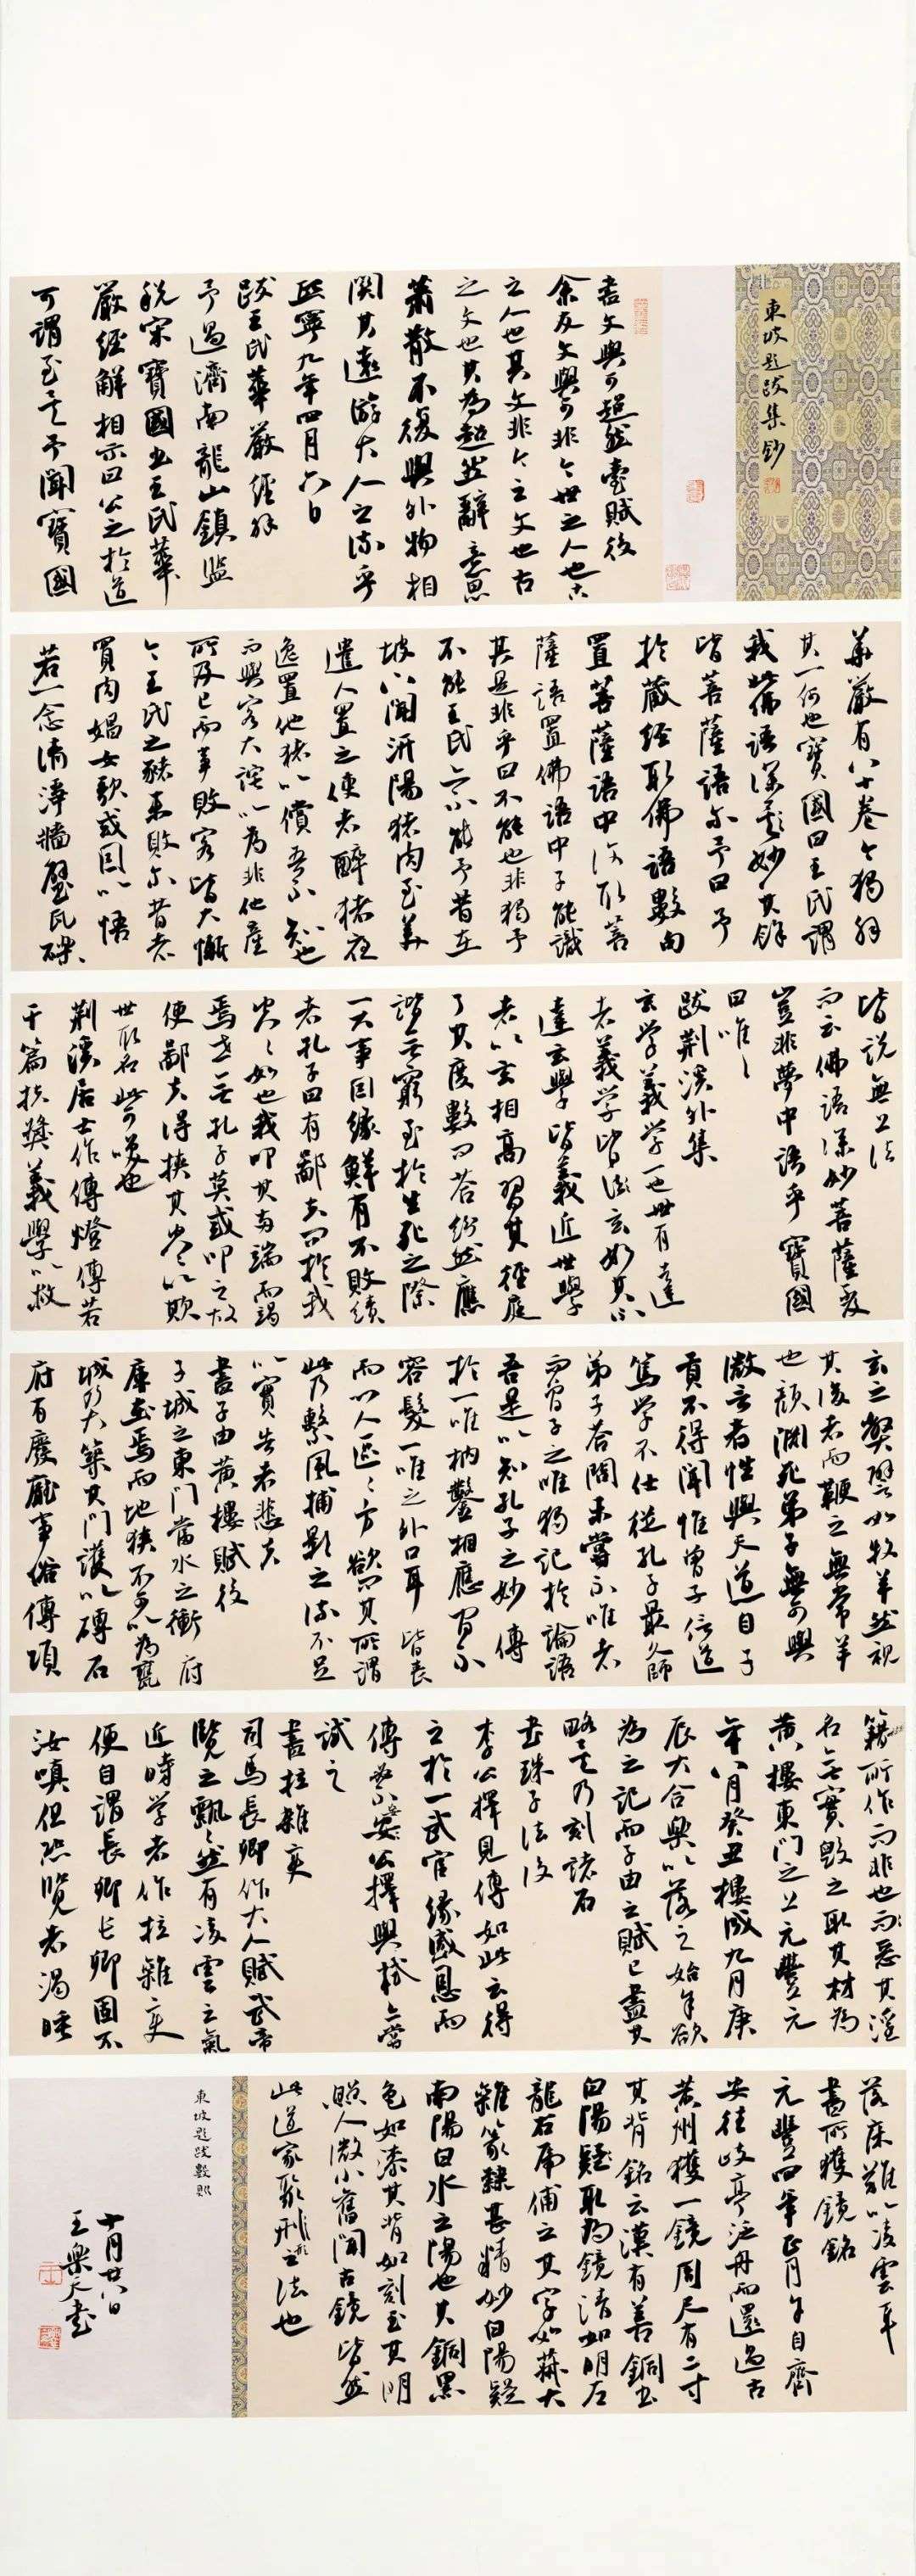 東坡題跋集鈔
書文與可超然臺賦後
余友文與可非今世之人也古
之人也其文非今之文也古
之文也其為超然辭意思
蕭散不復與外物相
關其遠游大人之流乎
熙寧九年四月六日
跋王氏華嚴經解
予過濟南龍山鎮監
稅宋寶國出王氏華
嚴經解相示曰公之於道
可謂至矣予聞寶國
華嚴有八十卷今獨解
其一何也寶國曰王氏謂
我此佛語深妙其餘
皆菩薩語尔予曰予
於藏經取佛語數句
置菩薩語中復取菩
薩語置佛語中子能識
其是非乎曰不能也非獨子
不能王氏亦不能予昔在
坡下聞汧陽猪肉至美
遣人置之使者醉猪夜
逸置他猪以償吾不知也
而與客大詫以為非他產
所及已而事敗客皆大慚
今王氏之豬未敗尔昔者
買肉娼女歌或因以悟
若一念清淨牆壁瓦礫
皆說無上法
而云佛語深妙菩薩不及
豈非夢中語乎寶國
曰唯唯
跋荊溪外集
玄學義學一也世有達
者義學皆玄如其不
達玄學皆義近世學
者以玄相高習其徑庭
了其度數問答紛然應
諾無窮至於生死之際
一大事因緣鮮有不敗績
者孔子曰有鄙夫問於我
空空如也我叩其兩端而竭
焉世無孔子莫或叩之故
使鄙夫得挾其空空以欺
世取名此可笑也
荊溪居士作傳燈傳若
干篇扶獎義學以救
玄之弊譬如牧羊然視
其後者而鞭之無常羊
也顏淵死弟子無可與
微言者性與天道自子
貢不得聞惟曾子信道
篤學不仕從孔子最久師
弟子答問未嘗不唯者
而曾子之唯獨記於論語
吾是以知孔子之妙傳
於一唯枘鑿相應間不
容髮一唯之外口耳皆喪
而門人區區方欲問其所謂
此乃繫風捕影之流不足
以實告者悲夫
書子由黃樓賦後
子城之東門當水之衝府
庫在焉而地狹不可以為甕
城乃大築其門護以磚石
府有廢廳事俗傳項
籍所作而非也而惡其淫
名無實毀之取其材為
黃樓東門之上元豐元
年八月癸丑樓成九月庚
辰大合樂以落之始余欲
為之記而子由之賦已盡其
略矣乃刻諸石
書珠子法後
李公擇見傳如此云得
之於一武官緣感恩而
傳必不妄公擇與拭亦當
試之
書拉雜變
司馬長卿作大人賦武帝
覽之飄飄然有凌雲之氣
近時學者作拉雜變
便自謂長卿長卿固不
汝嗔但恐覽者渴睡
落床難以凌雲耳
書所獲鏡銘
元豐四年正月余自齊
安往岐亭泛舟而還過古
黃州獲一鏡周尺有二寸
其背銘云漢有善銅出
白陽疑取為鏡清如明左
龍右虎俌之其字如菽大
雜篆隸甚精妙白陽疑
南陽白水之陽也其銅黑
色如漆其背如刻玉其明
照人微小舊聞古鏡皆然
此道家聚形之法也
東坡題跋數則
十月廿八日
王樂天書